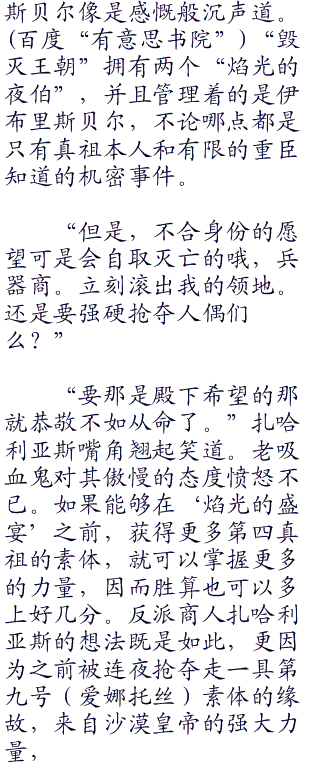 斯贝尔像是感慨般沉声道。
(百度“有意思书院”)“毁
灭王朝”拥有两个“焰光的
夜伯”，并且管理着的是伊
布里斯贝尔，不论哪点都是
只有真祖本人和有限的重臣
知道的机密事件。
“但是，不合身份的愿
望可是会自取灭亡的哦，兵
器商。立刻滚出我的领地。
还是要强硬抢夺人偶们
么？”
“要那是殿下希望的那
就恭敬不如从命了。”扎哈
利亚斯嘴角翘起笑道。老吸
血鬼对其傲慢的态度愤怒不
已。如果能够在‘焰光的盛
宴’之前，获得更多第四真
祖的素体，就可以掌握更多
的力量，因而胜算也可以多
上好几分。反派商人扎哈利
亚斯的想法既是如此，更因
为之前被连夜抢夺走一具第
九号（爱娜托丝）素体的缘
故，来自沙漠皇帝的强大力
量，